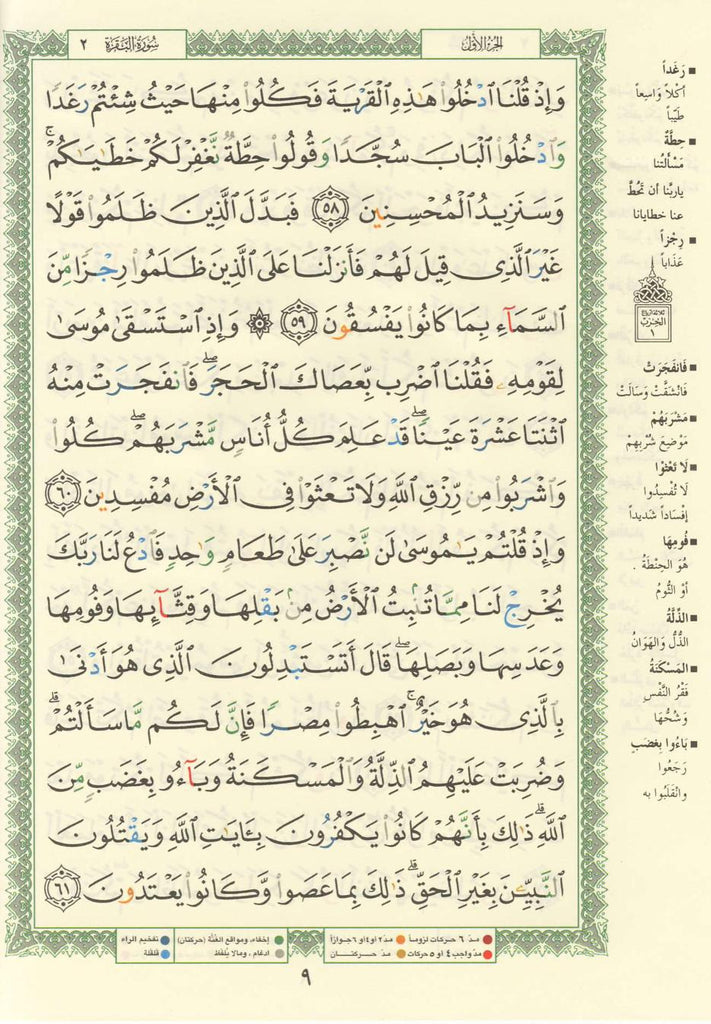 الجزء الأول
سورة البقرة ٢
وَإِذْ قُلْنَا ٱدْخُلُوا۟ هَـٰذِهِ ٱلْقَرْيَةَ فَكُلُوا۟ مِنْهَا حَيْثُ شِئْتُمْ رَغَدًا
وَٱدْخُلُوا۟ ٱلْبَابَ سُجَّدًا وَقُولُوا۟ حِطَّةٌ نَّغْفِرْ لَكُمْ خَطَـٰيَـٰكُمْ ۚ
وَسَنَزِيدُ ٱلْمُحْسِنِينَ ٥٨ فَبَدَّلَ ٱلَّذِينَ ظَلَمُوا۟ قَوْلًا
غَيْرَ ٱلَّذِى قِيلَ لَهُمْ فَأَنزَلْنَا عَلَى ٱلَّذِينَ ظَلَمُوا۟ رِجْزًا مِّنَ
ٱلسَّمَآءِ بِمَا كَانُوا۟ يَفْسُقُونَ ٥٩ ۞ وَإِذِ ٱسْتَسْقَىٰ مُوسَىٰ
لِقَوْمِهِۦ فَقُلْنَا ٱضْرِب بِّعَصَاكَ ٱلْحَجَرَ ۖ فَٱنفَجَرَتْ مِنْهُ
ٱثْنَتَا عَشْرَةَ عَيْنًا ۖ قَدْ عَلِمَ كُلُّ أُنَاسٍ مَّشْرَبَهُمْ ۖ كُلُوا۟
وَٱشْرَبُوا۟ مِن رِّزْقِ ٱللَّهِ وَلَا تَعْثَوْا۟ فِى ٱلْأَرْضِ مُفْسِدِينَ ٦٠
وَإِذْ قُلْتُمْ يَـٰمُوسَىٰ لَن نَّصْبِرَ عَلَىٰ طَعَامٍ وَٰحِدٍ فَٱدْعُ لَنَا رَبَّكَ
يُخْرِجْ لَنَا مِمَّا تُنۢبِتُ ٱلْأَرْضُ مِنۢ بَقْلِهَا وَقِثَّآئِهَا وَفُومِهَا
وَعَدَسِهَا وَبَصَلِهَا ۖ قَالَ أَتَسْتَبْدِلُونَ ٱلَّذِى هُوَ أَدْنَىٰ
بِٱلَّذِى هُوَ خَيْرٌ ۚ ٱهْبِطُوا۟ مِصْرًا فَإِنَّ لَكُم مَّا سَأَلْتُمْ ۗ
وَضُرِبَتْ عَلَيْهِمُ ٱلذِّلَّةُ وَٱلْمَسْكَنَةُ وَبَآءُو بِغَضَبٍ مِّنَ
ٱللَّهِ ۗ ذَٰلِكَ بِأَنَّهُمْ كَانُوا۟ يَكْفُرُونَ بِـَٔايَـٰتِ ٱللَّهِ وَيَقْتُلُونَ
ٱلنَّبِيِّـۧنَ بِغَيْرِ ٱلْحَقِّ ۗ ذَٰلِكَ بِمَا عَصَوا۟ وَّكَانُوا۟ يَعْتَدُونَ ٦١
رَغَداً
أكْلاً وَاسِعاً
طَيِّباً
حِطَّةٌ
مَسْألَتُنا
ياربَّنا أن تَحُطَّ
عنا خطايانا
رِجْزاً
عَذَاباً
الحزب
١
فَانفَجَرَتْ
فَانْشَقَّتْ وَسَالَتْ
مَشْرَبَهُمْ
مَوْضِعَ شُرْبِهِمْ
لَا تَعْثَوْا
لَا تُفْسِدُوا
إفْسَاداً شَدِيداً
فُومِهَا
هُوَ الحِنْطَةُ .
أوْ الثُّومُ
الذِّلَّةُ
الذُّلُّ وَالهَوَانُ
المَسْكَنَةُ
فَقْرُ النَّفْسِ
وَشُحُّهَا
بَاءُوا بِغَضَبٍ
رَجَعُوا
وانْقَلَبُوا به
مدّ ٦ حركات لزوماً مدّ ٢ او ٤ او ٦ جوازاً إخفاء، ومواقع الغُنَّة (حركتان) تفخيم الراء
مدّ واجب ٤ او ٥ حركات مدّ حركتـــان ادغام ، ومالا يُلفظ قلقلة
٩